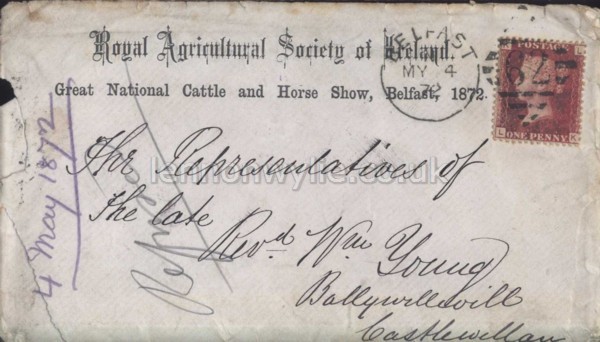 Royal Agricultural Society of Ireland.
Great National Cattle and Horse Show, Belfast, 1872.
BELFAST
MY 4
72
POSTAGE
ONE PENNY
L K
4 May 1872
The Representatives of
The late
Revd Wm Young
Ballywillwill
Castlewellan
Refused
lennonwylie.co.uk